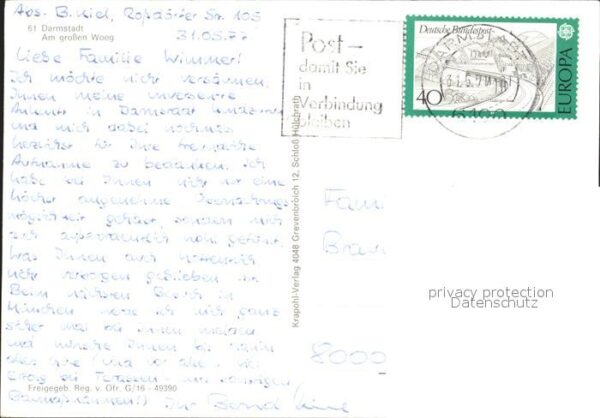 Abs. B. Kiel, Roßdörfer Str. 105
61 Darmstadt
Am großen Woog
31.05.77
Liebe Familie Wimmer!
Ich möchte nicht versäumen,
Ihnen meine
Ankunft in Darmstadt
und mich dabei nochmals
herzlich für Ihre freundliche
Aufnahme zu bedanken. Ich
habe bei Ihnen nicht nur eine
höchst angenehme
gehabt, sondern mich
auch wohl gefühlt,
was Ihnen auch hoffentlich
nicht verborgen geblieben ist.
Beim nächsten Besuch in
München werde ich mich ganz
sicher mal bei Ihnen melden
und wünsche Ihnen bis dahin
alles Gute (und vor allem viel
Erfolg bei Terrassen- und sonstigen
Baumaßnahmen!) Ihr Bernd Kiel
Freigegeb. Reg. v. Ofr. G/16 - 49390
Krapohl-Verlag 4048 Grevenbroich 12, Schloß Hülchrath
Post –
damit Sie
in
Verbindung
bleiben
Deutsche Bundespost
40
EUROPA
DARMSTADT
31.5.77
6100
Fami
Brau
8000
privacy protection
Datenschutz